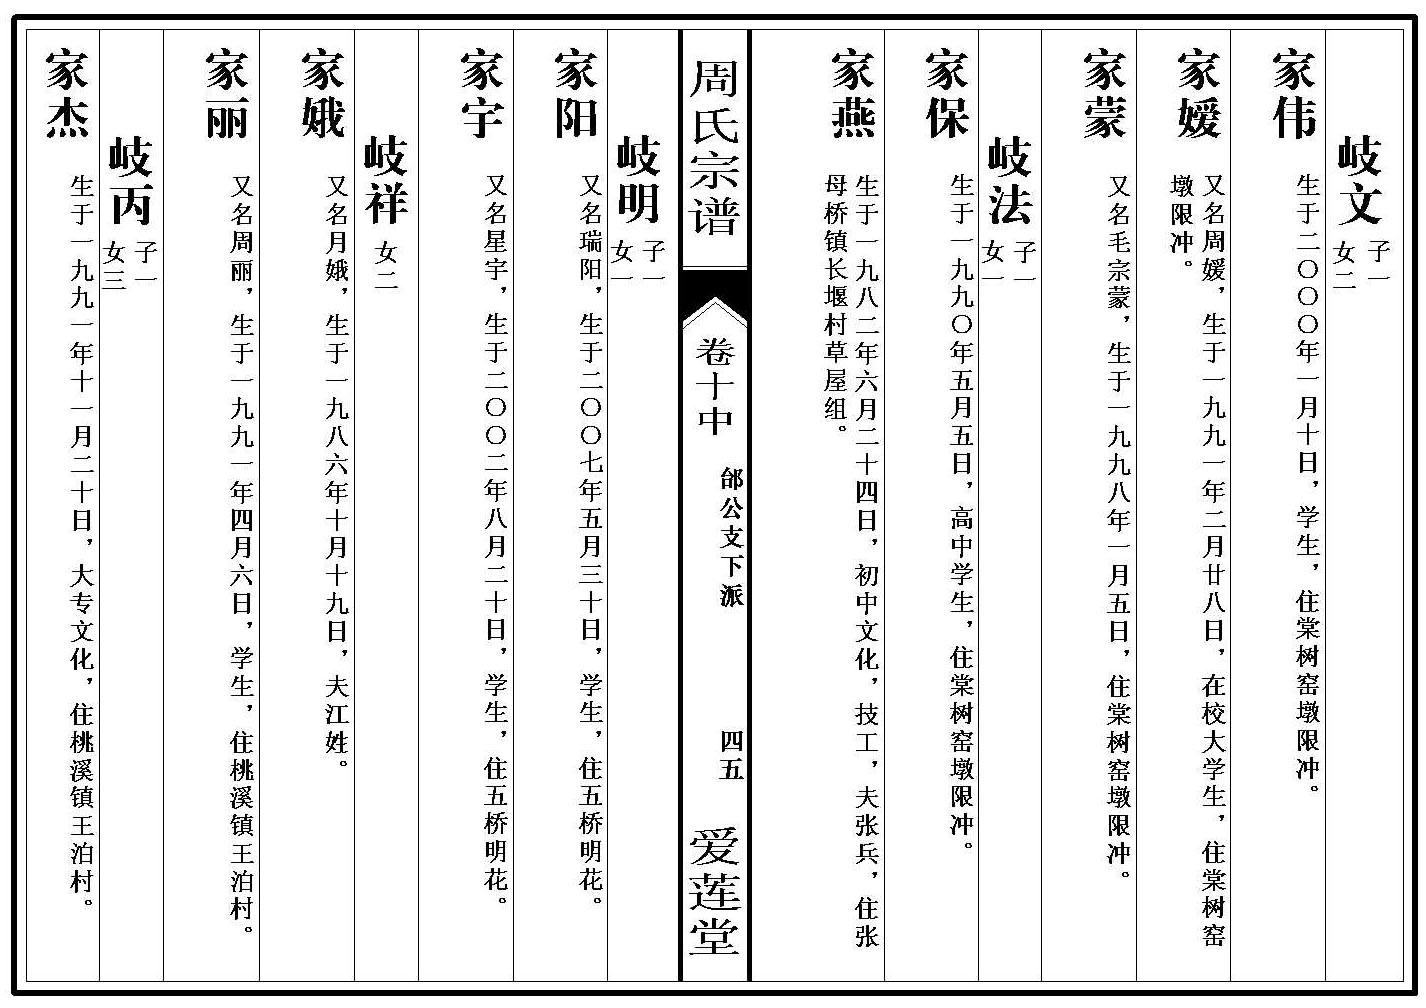 岐文
子一
女二
家伟
生于二〇〇〇年一月十日，学生，住棠树窑墩限冲。
家媛
又名周媛，生于一九九一年二月廿八日，在校大学生，住棠树窑
墩限冲。
家蒙
又名毛宗蒙，生于一九九八年一月五日，住棠树窑墩限冲。
岐法
子一
女一
家保
生于一九九〇年五月五日，高中学生，住棠树窑墩限冲。
家燕
生于一九八二年六月二十四日，初中文化，技工，夫张兵，住张
母桥镇长堰村草屋组。
周氏宗谱
卷十中
邰公支下派
四五
爱莲堂
岐明
子一
女一
家阳
又名瑞阳，生于二〇〇七年五月三十日，学生，住五桥明花。
家宇
又名星宇，生于二〇〇二年八月二十日，学生，住五桥明花。
岐祥
女二
家娥
又名月娥，生于一九八六年十月十九日，夫江姓。
家丽
又名周丽，生于一九九一年四月六日，学生，住桃溪镇王泊村。
岐丙
子一
女三
家杰
生于一九九一年十一月二十日，大专文化，住桃溪镇王泊村。